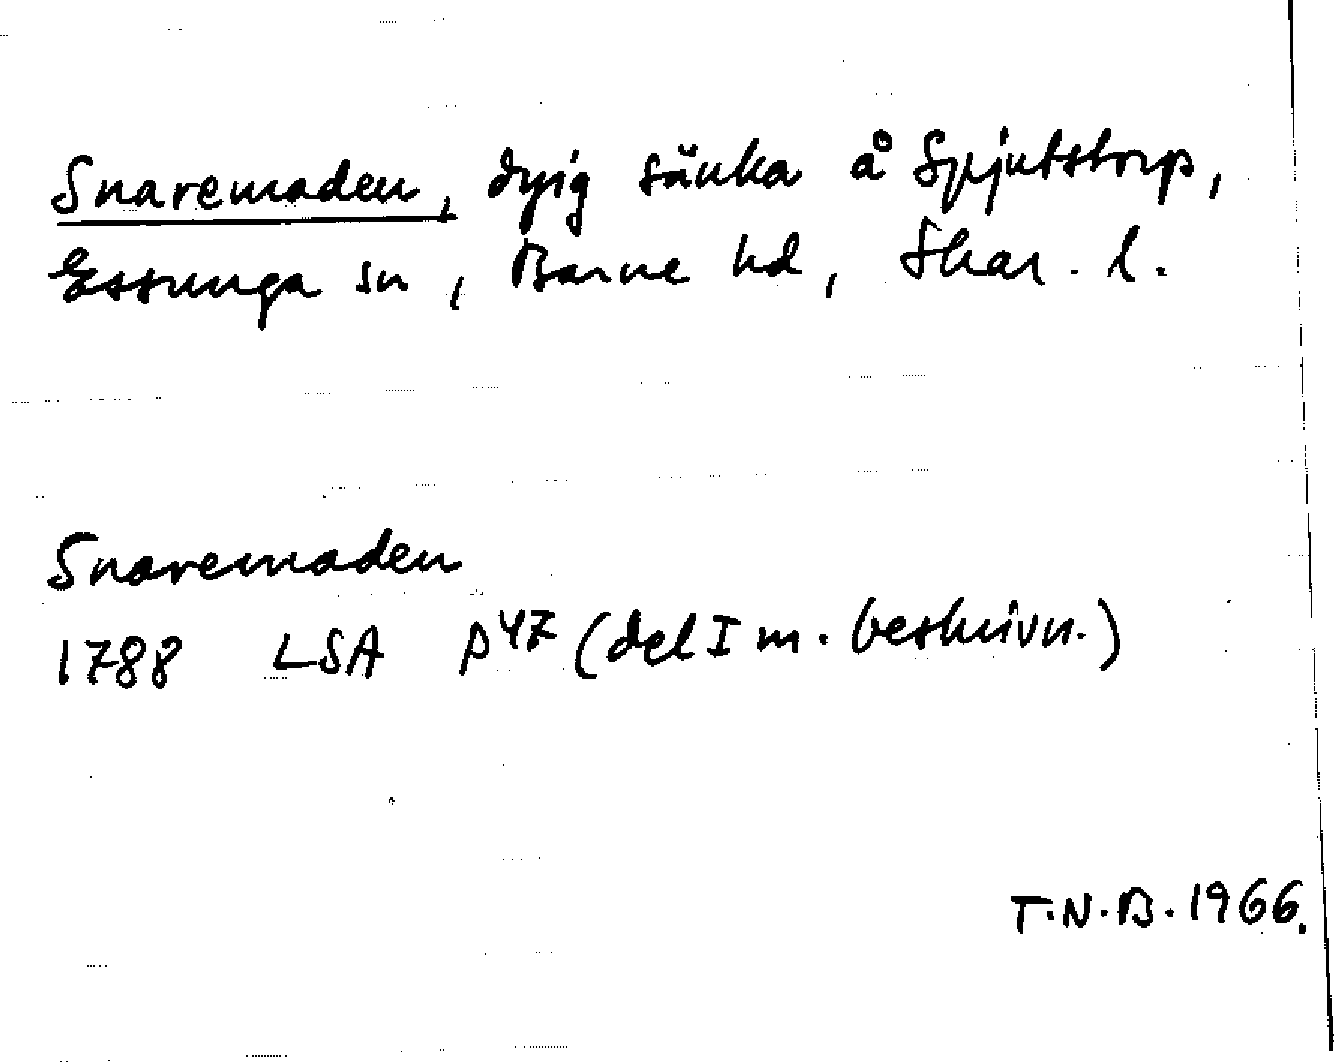 Snaremaden, dyig sänka å Spjutstorp,
Essunga sn, Barne hd, Skar. l.
Snaremaden
1788 LSA P47 (del I m. beskrivn.)
T.N.B. 1966.